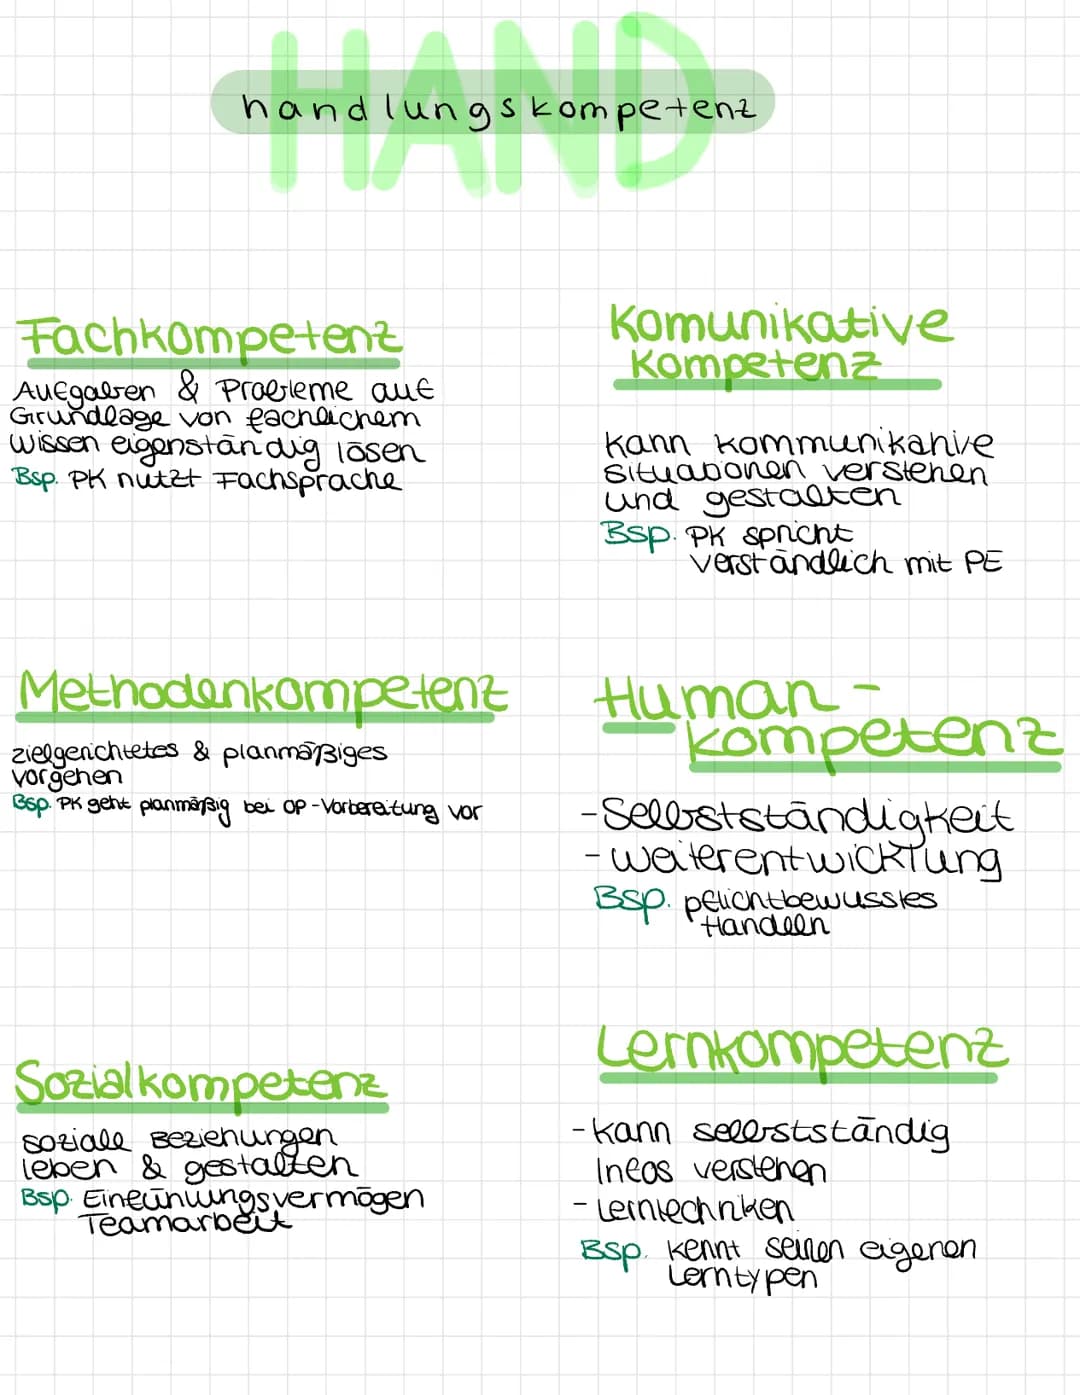 HAND
handlungskompetenz
Fachkompetenz
Aufgaben & Probleme auf
Grundlage von fachlichem
wissen eigenständig lösen
Bsp. PK nutzt Fachsprache
Komunikative
Kompetenz
kann kommunikative
situationen verstehen
und gestalten
Bsp. PK spricht
verständlich mit PE
Methodenkompetenz
zielgerichtetes & planmäßiges
vorgehen
Bsp. PK geht planmäßig bei OP-Vorbereitung vor
Human-
kompetenz
-Selbstständigkeit
-weiterentwicklung
Bsp. pflichtbewusstes
Handeln
Sozialkompetenz
soziale Beziehungen
leben & gestalten
Bsp. Einfühlungsvermögen
Teamarbeit
Lernkompetenz
-kann selbstständig
Infos verstehen
-Lerntechniken
Bsp. kennt seinen eigenen
Lerntypen